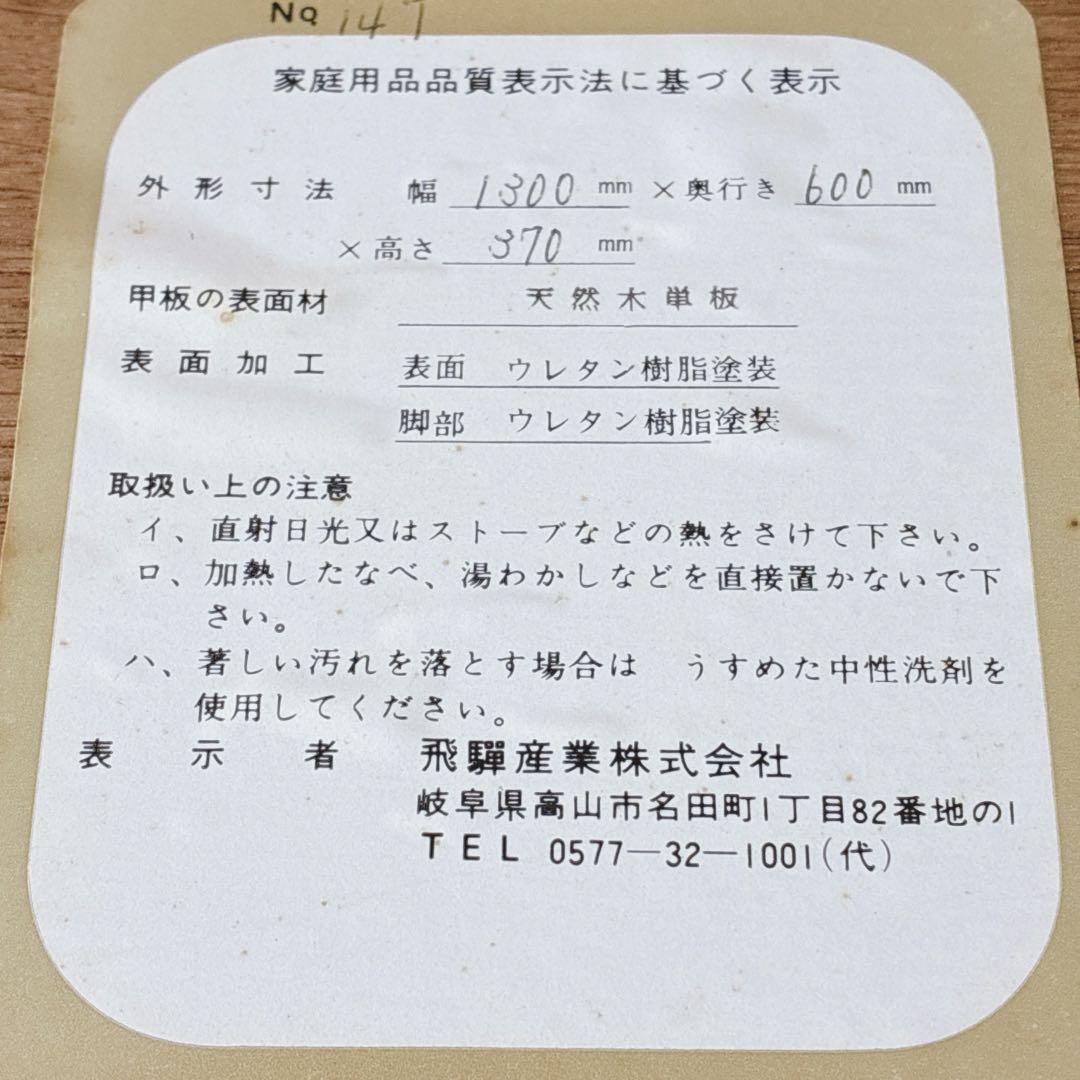 No 147
家庭用品品質表示法に基づく表示
外形寸法 幅 1300 mm ×奥行き 600 mm
×高さ 370 mm
甲板の表面材 天然木単板
表面加工 表面 ウレタン樹脂塗装
脚部 ウレタン樹脂塗装
取扱い上の注意
イ、直射日光又はストーブなどの熱をさけて下さい。
ロ、加熱したなべ、湯わかしなどを直接置かないで下
さい。
ハ、著しい汚れを落とす場合は うすめた中性洗剤を
使用してください。
表示者 飛驒産業株式会社
岐阜県高山市名田町1丁目82番地の1
TEL 0577-32-1001(代)